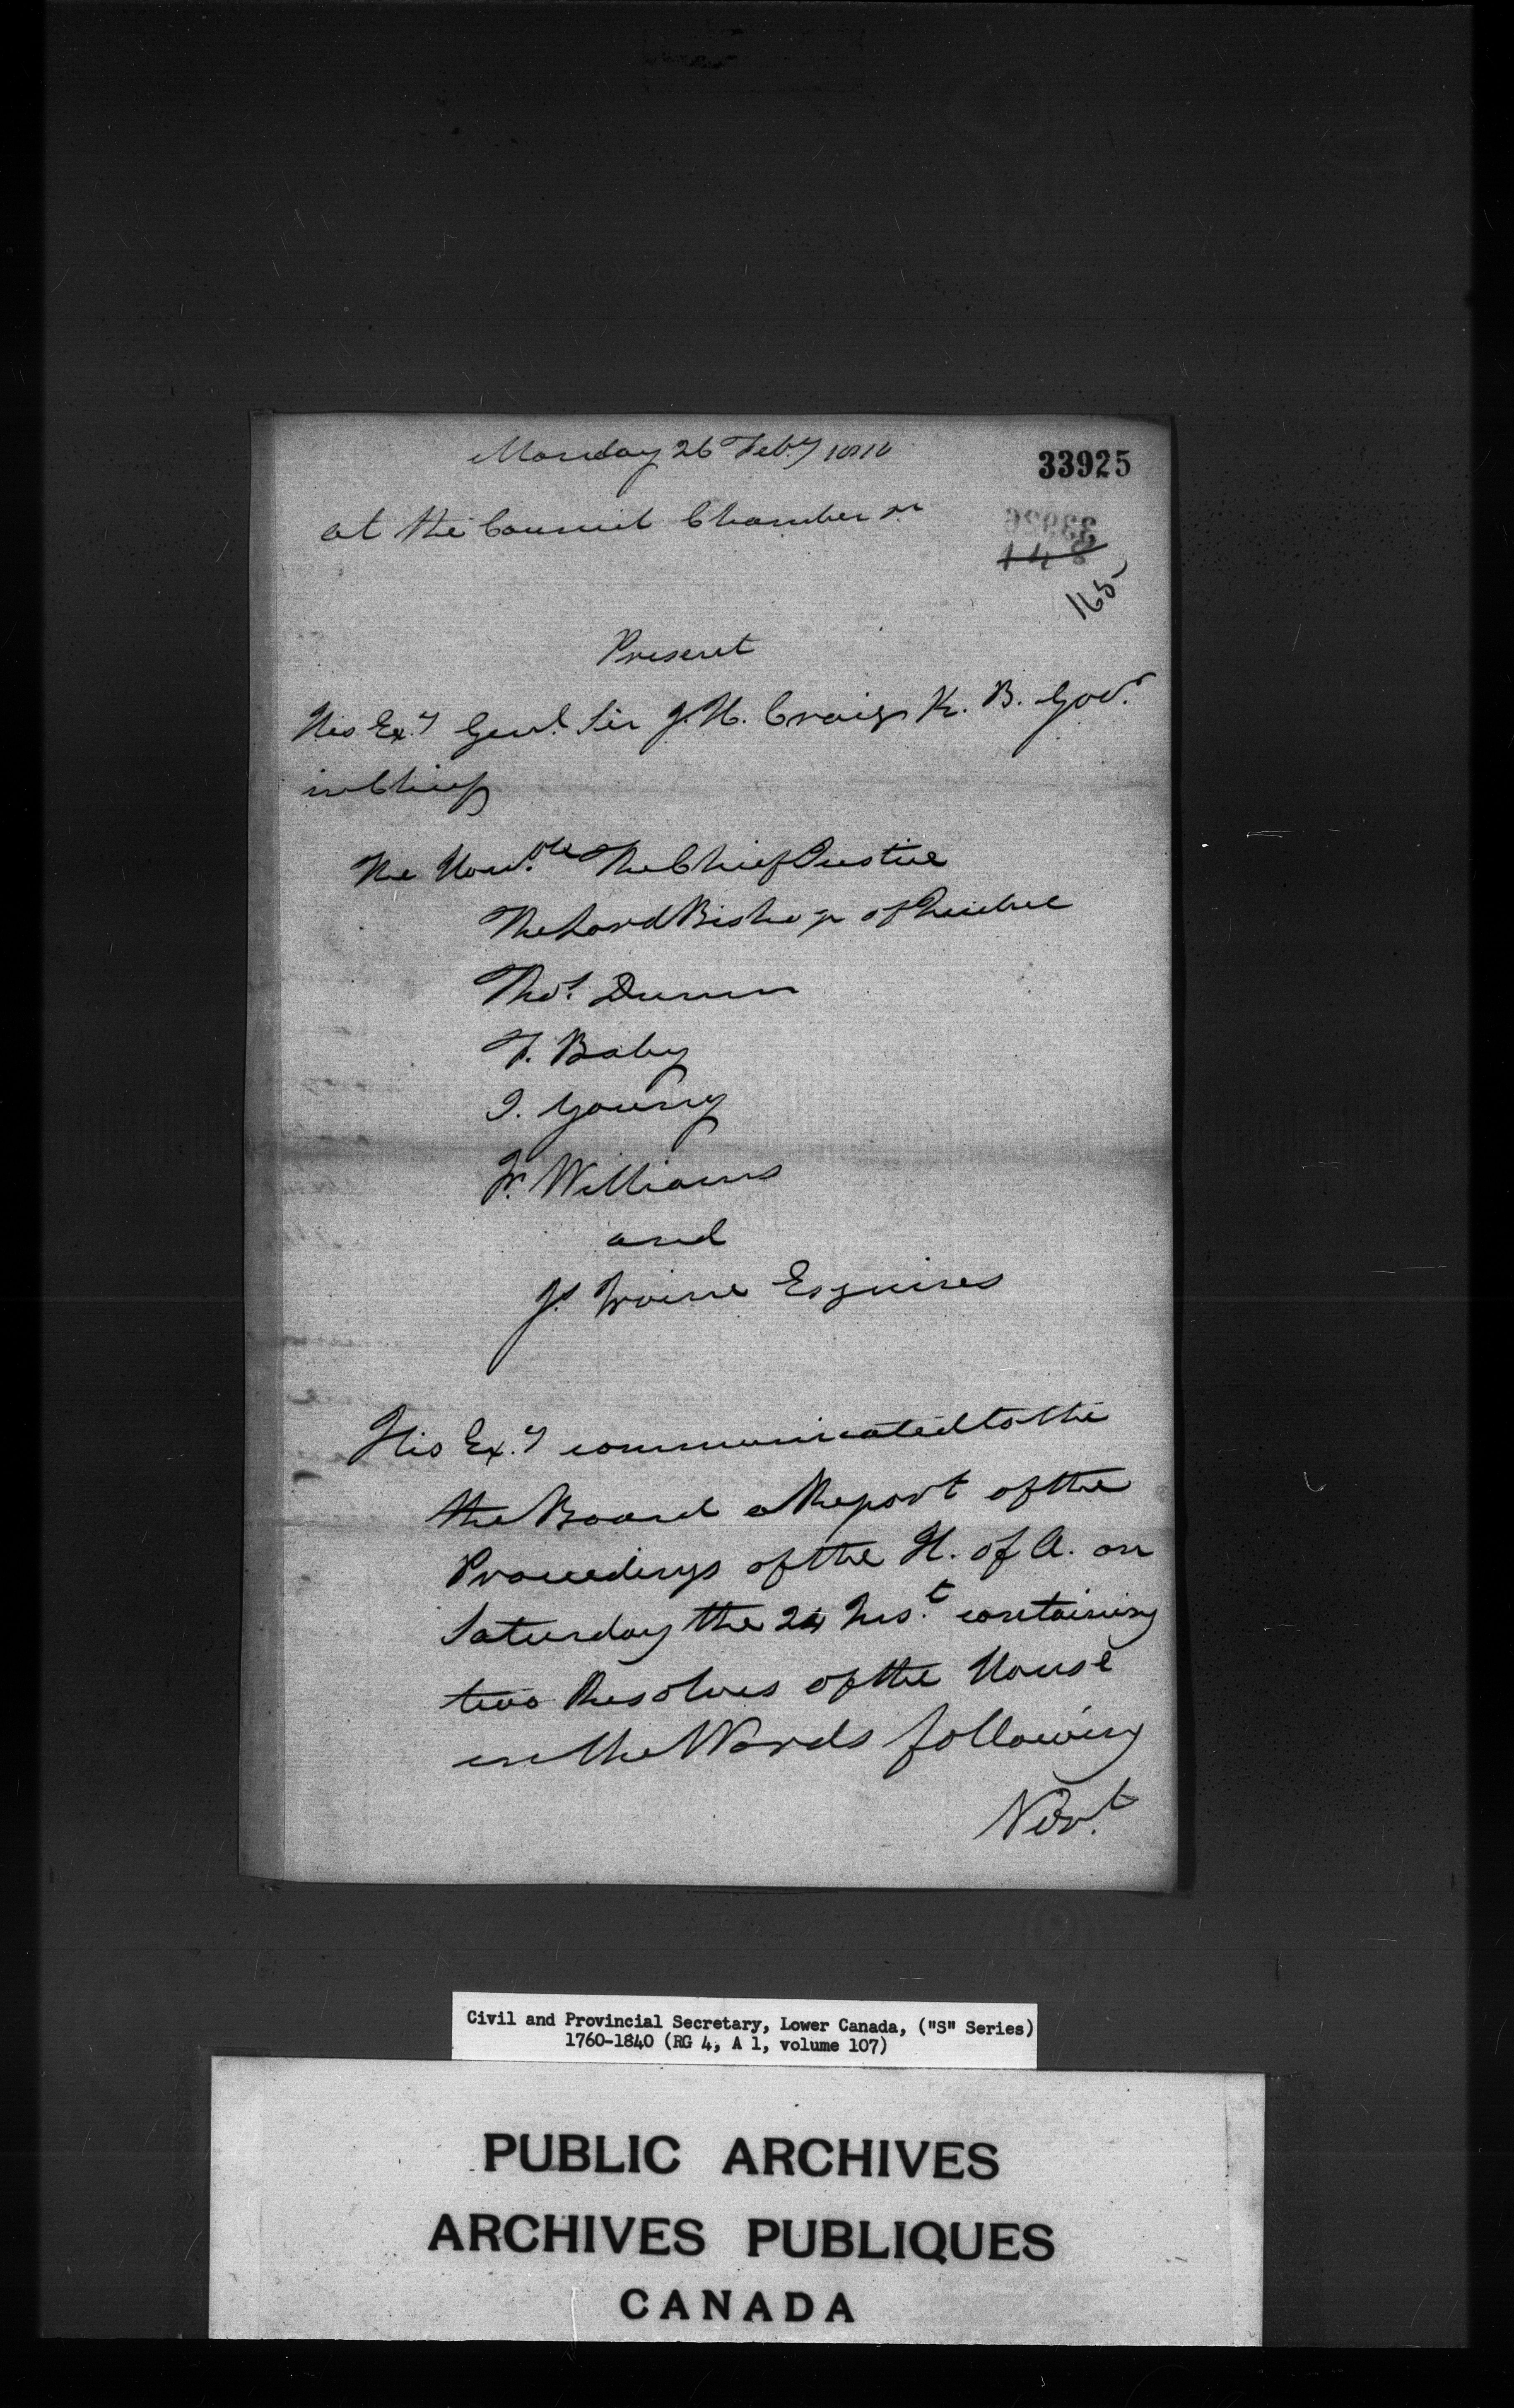 Monday 26 Feby 1810
33925
at the Council Chamber
33926
148
165
Present
His Exy Genl. Sir J. H. Craig K. B. Govr
in Chief
The Honble The Chief Justice
The Lord Bishop of Quebec
Thos. Dunn
F. Baby
J. Young
Jn. Williams
and
Js. Irvine Esquires
His Exy communicated to the
the Board a Report of the
Proceedings of the H. of A. on
Saturday the 24 Inst. containing
two Resolves of the House
in the Words following
Civil and Provincial Secretary, Lower Canada, ("S" Series)
1760-1840 (RG 4, A 1, volume 107)
PUBLIC ARCHIVES
ARCHIVES PUBLIQUES
CANADA